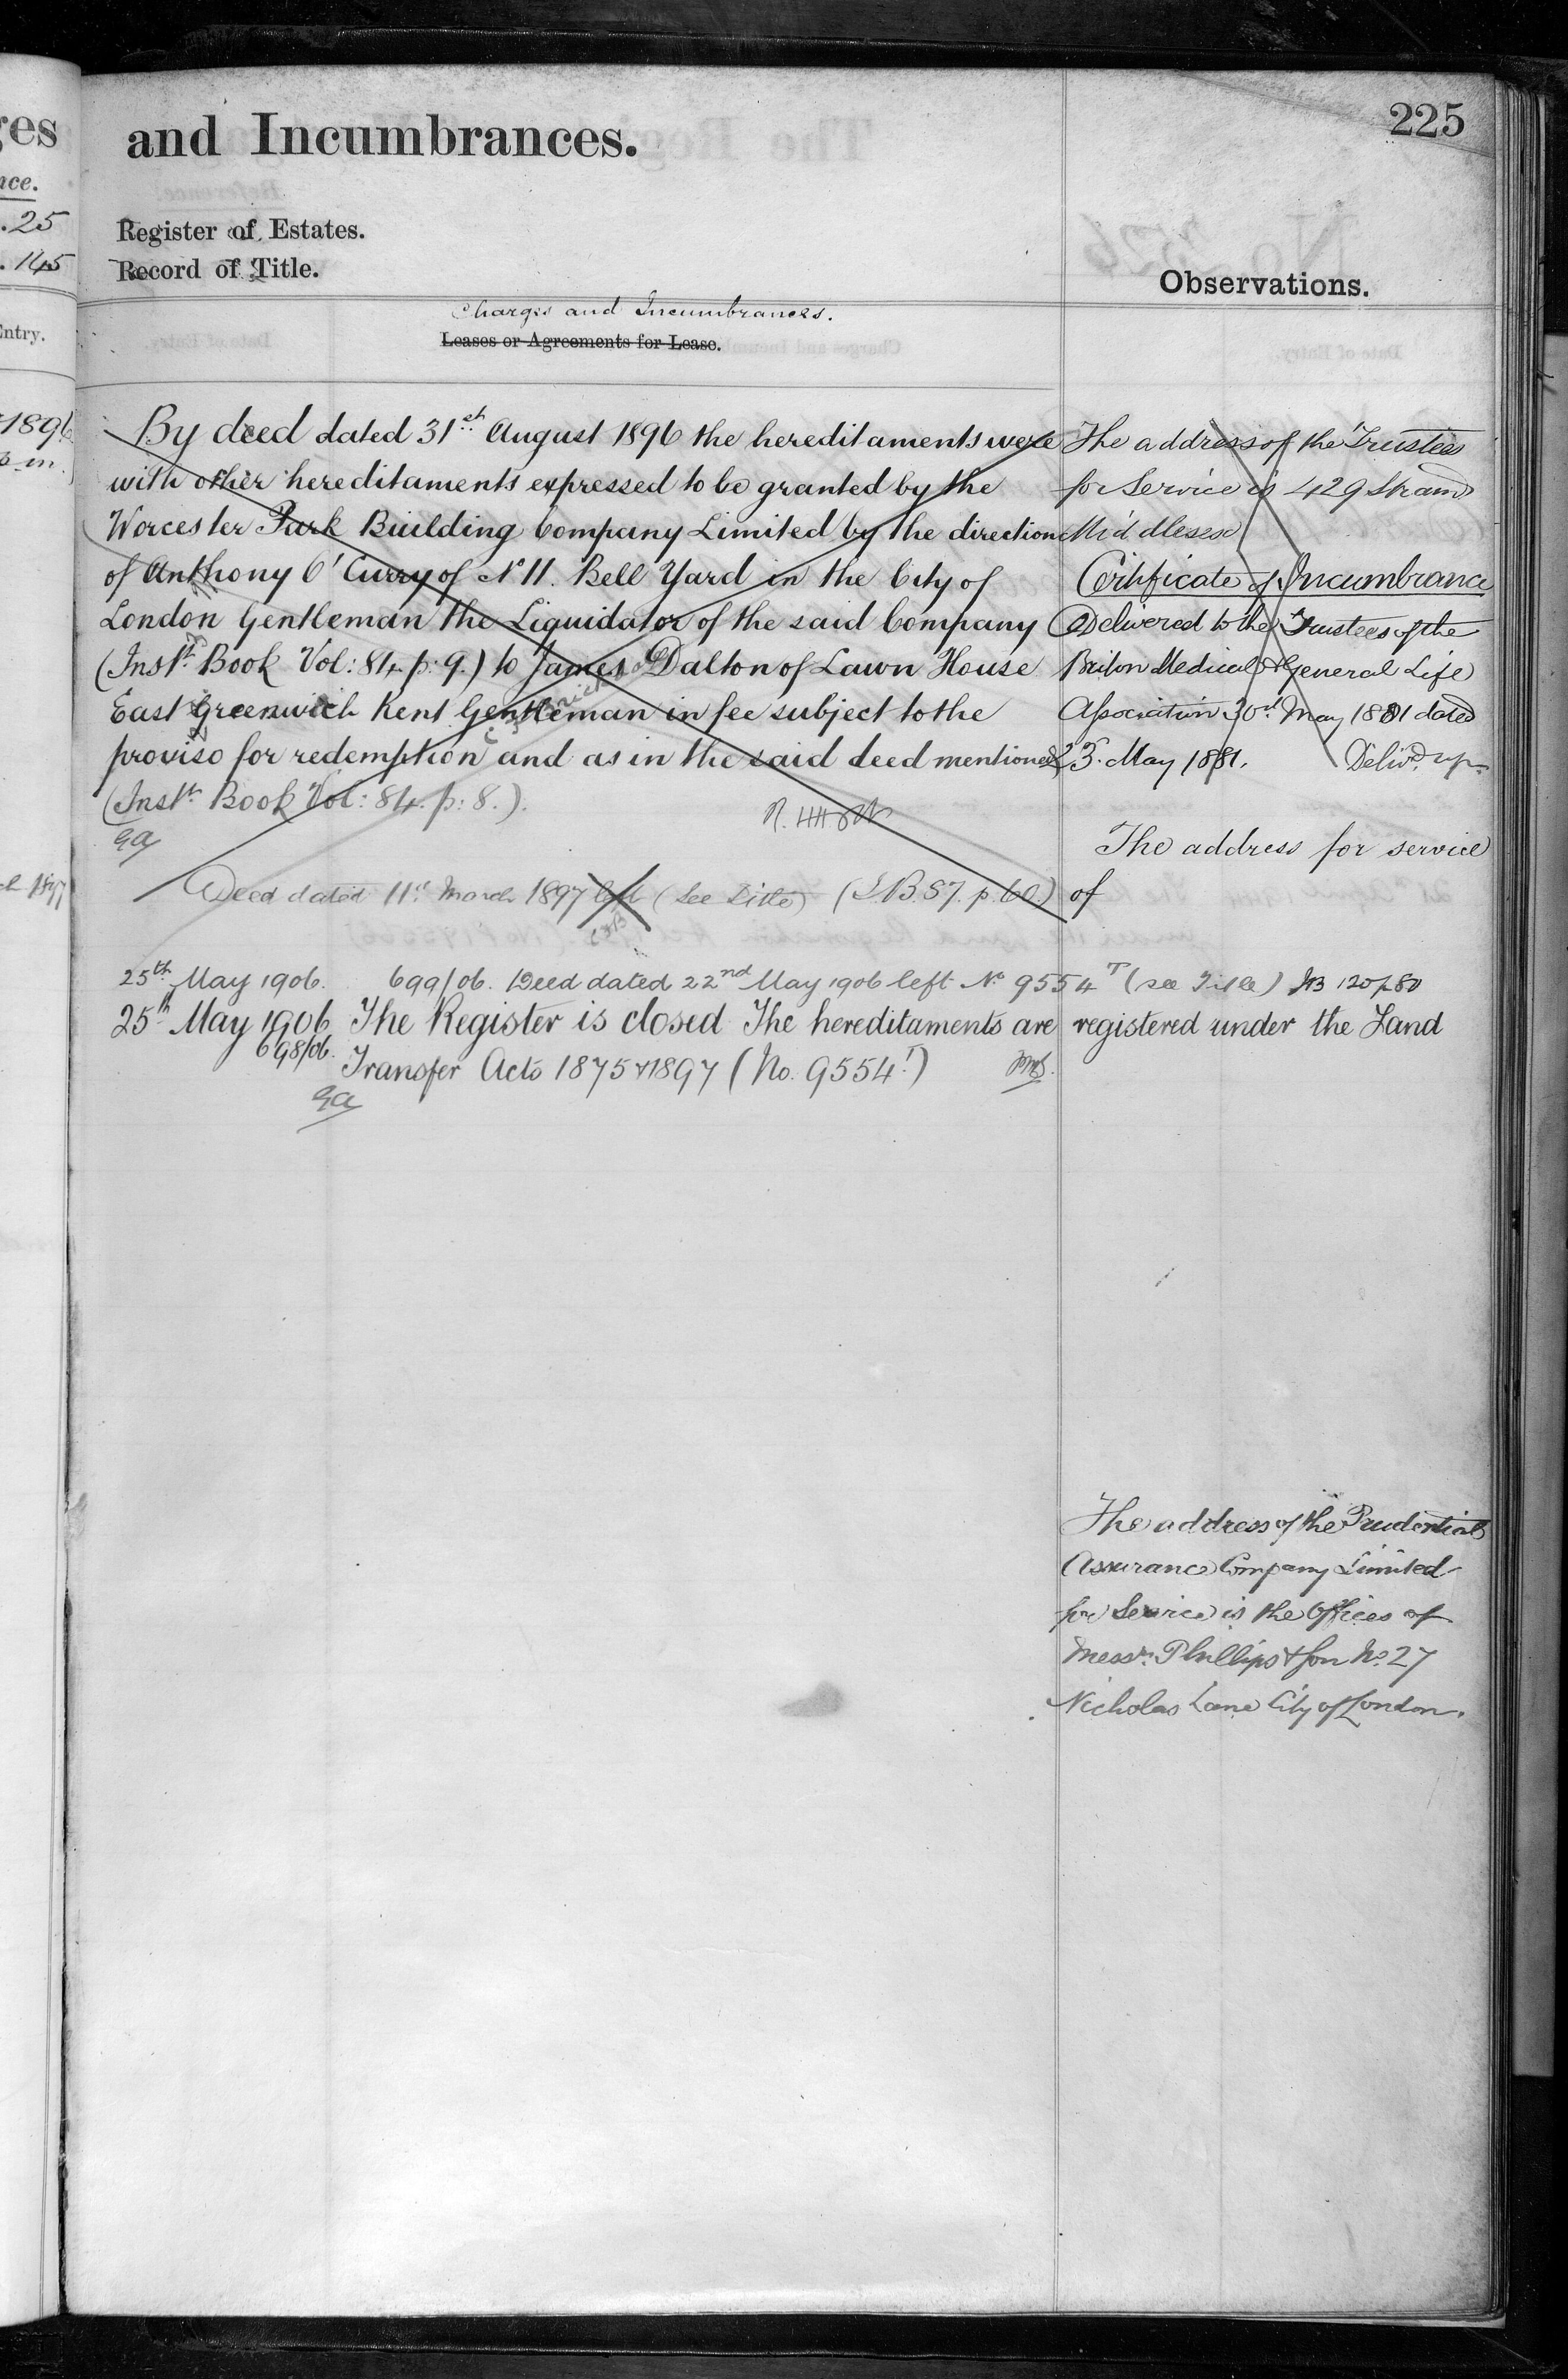 ges
and Incumbrances.
225
nce.
.25
. 145
Register of Estates.
Record of Title.
Observations.
Charges and Incumbrances.
Leases or Agreements for Lease.
Entry.
1896
By deed dated 31st August 1896 the hereditaments were
with other hereditaments expressed to be granted by the
Worcester Park Building Company Limited by the direction
of Anthony O'Curry of No 11. Bell Yard in the City of
London Gentleman the Liquidator of the said Company
(Instt. Book Vol: 84. p: 9.) to James Dalton of Lawn House
East Greenwich Kent Gentleman in fee subject to the
proviso for redemption and as in the said deed mentioned
(Instt. Book Vol: 84. p: 8.).
Deed dated 11th March 1897 left (See Title) (I.B. 87. p. 60.)
The address of the Trustees
for Service is 429 Strand
Middlesex
Certificate of Incumbrance
Delivered to the Trustees of the
Briton Medical & General Life
Association 30th May 1881 dated
23. May 1881. Delivd. up
The address for service
of
25th May 1906. 699/06. Deed dated 22nd May 1906 left No 9554T (see Title) IB 120 p 80
25th May 1906 The Register is closed The hereditaments are registered under the Land
698/06. Transfer Acts 1875 & 1897 (No. 9554T)
The address of the Prudential
Assurance Company Limited
for Service is the Offices of
Messrs. Phillips & Son No. 27
Nicholas Lane City of London.